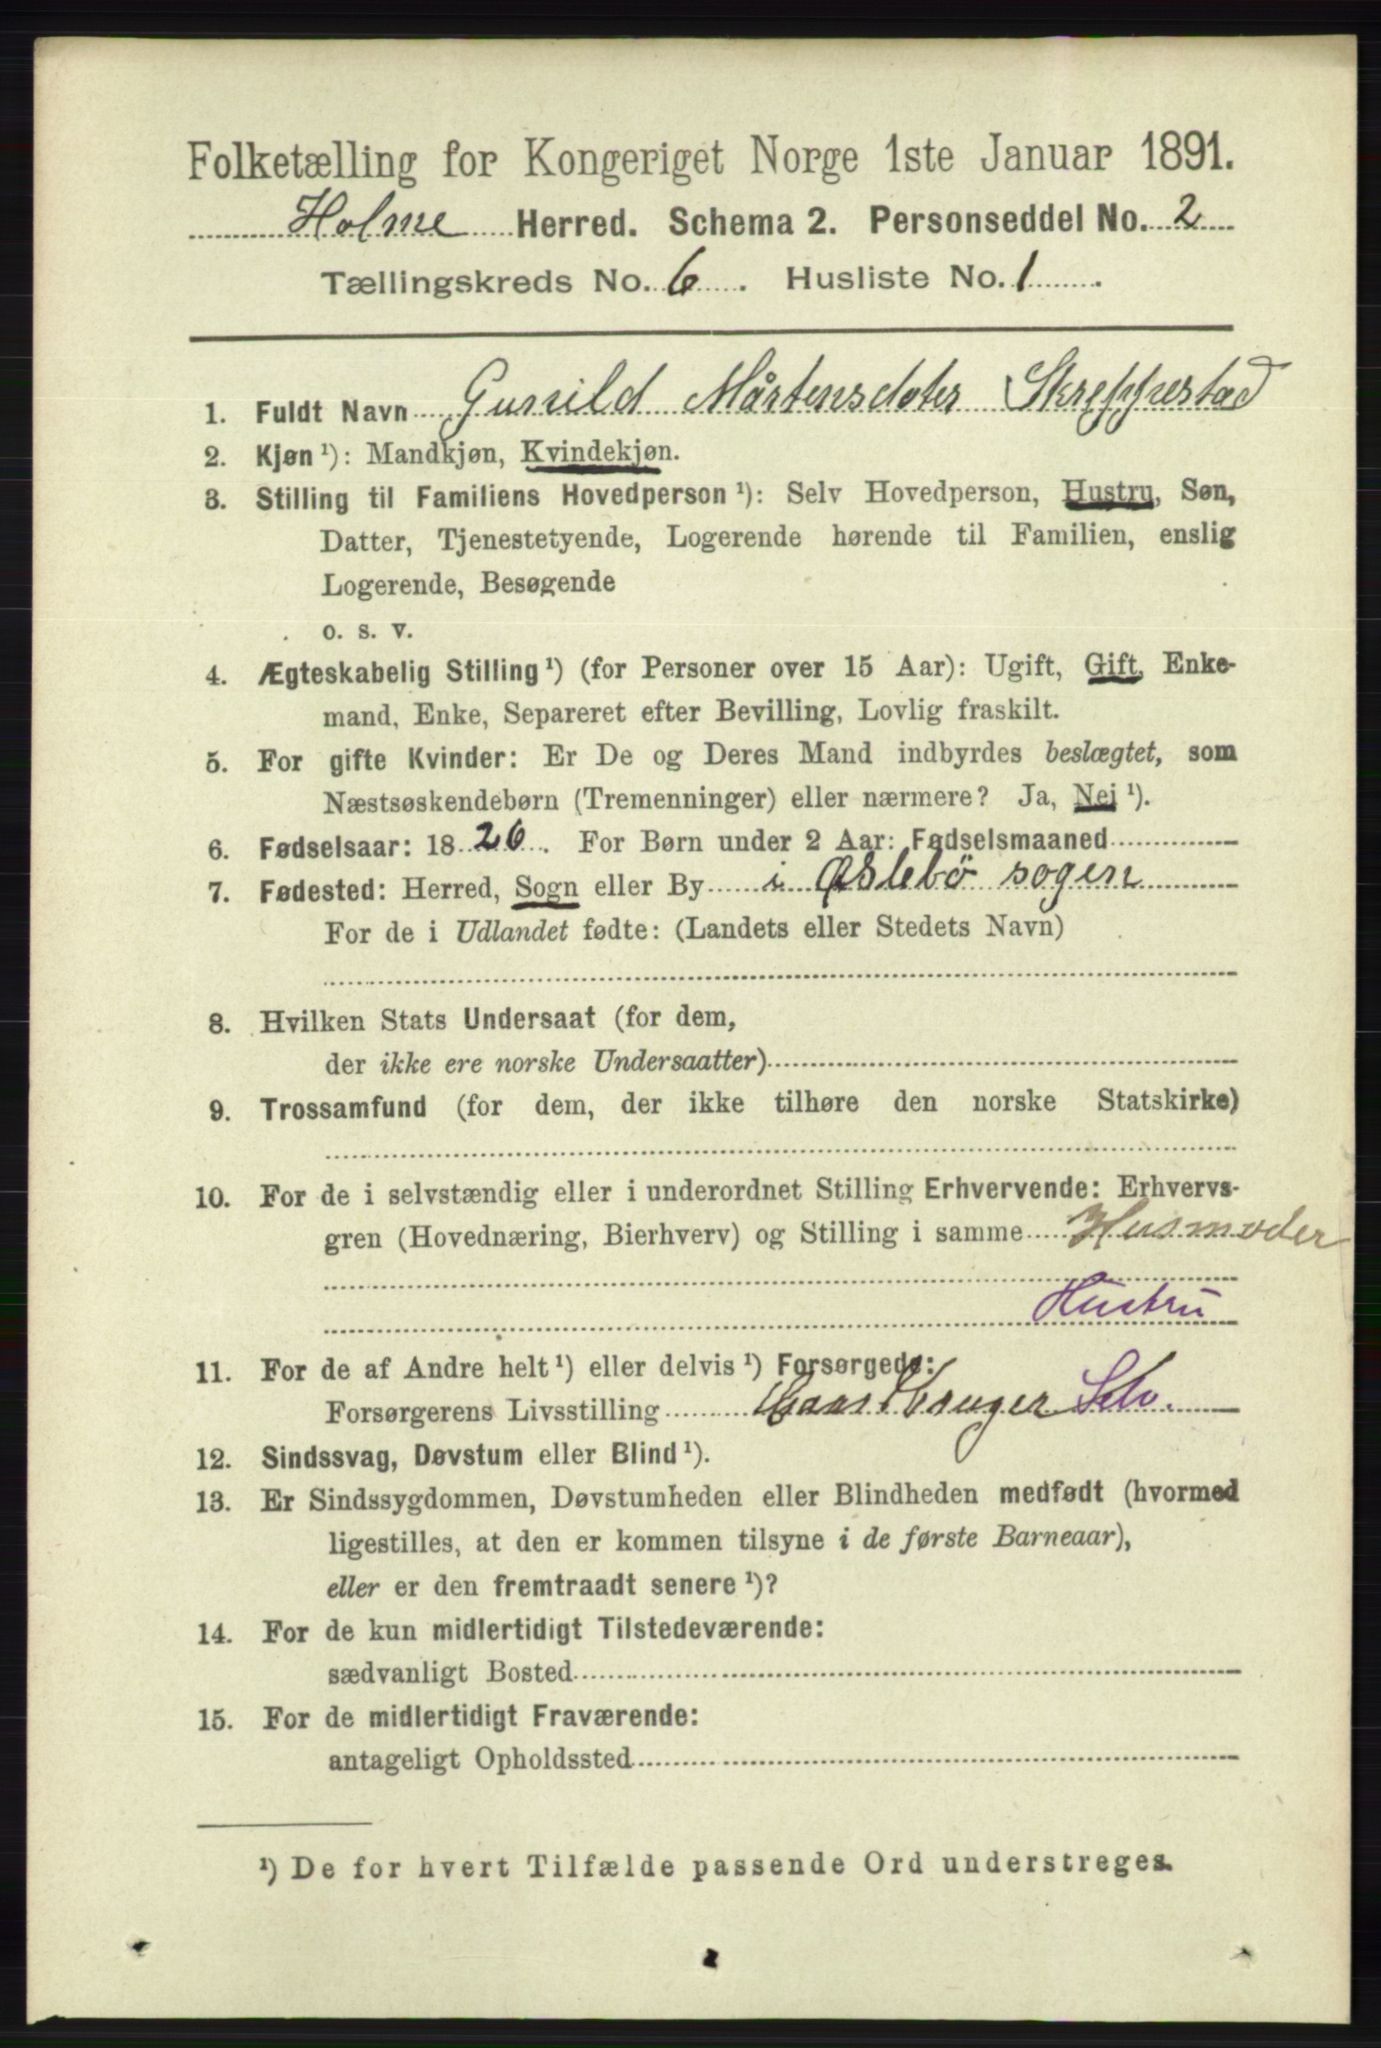 Folketælling for Kongeriget Norge 1ste Januar 1891.
Holme Herred. Schema 2. Personseddel No. 2
Tællingskreds No. 6. Husliste No. 1.
1. Fuldt Navn Gunild Mårtensdater
2. Kjøn ¹): Mandkjøn, Kvindekjøn.
3. Stilling til Familiens Hovedperson ¹): Selv Hovedperson, Hustru, Søn,
Datter, Tjenestetyende, Logerende hørende til Familien, enslig
Logerende, Besøgende
o. s. v.
4. Ægteskabelig Stilling ¹) (for Personer over 15 Aar): Ugift, Gift, Enke-
mand, Enke, Separeret efter Bevilling, Lovlig fraskilt.
5. For gifte Kvinder: Er De og Deres Mand indbyrdes beslægtet, som
Næstsøskendebørn (Tremenninger) eller nærmere? Ja, Nej ¹).
6. Fødselsaar: 1826. For Børn under 2 Aar: Fødselsmaaned
7. Fødested: Herred, Sogn eller By i Øslebö sogen
For de i Udlandet fødte: (Landets eller Stedets Navn)
8. Hvilken Stats Undersaat (for dem,
der ikke ere norske Undersaatter)
9. Trossamfund (for dem, der ikke tilhøre den norske Statskirke)
10. For de i selvstændig eller i underordnet Stilling Erhvervende: Erhvervs-
gren (Hovednæring, Bierhverv) og Stilling i samme Husmoder
Hustru
11. For de af Andre helt ¹) eller delvis ¹) Forsørgede:
Forsørgerens Livsstilling Selv.
12. Sindssvag, Døvstum eller Blind ¹).
13. Er Sindssygdommen, Døvstumheden eller Blindheden medfødt (hvormed
ligestilles, at den er kommen tilsyne i de første Barneaar),
eller er den fremtraadt senere ¹)?
14. For de kun midlertidigt Tilstedeværende:
sædvanligt Bosted
15. For de midlertidigt Fraværende:
antageligt Opholdssted
¹) De for hvert Tilfælde passende Ord understreges.